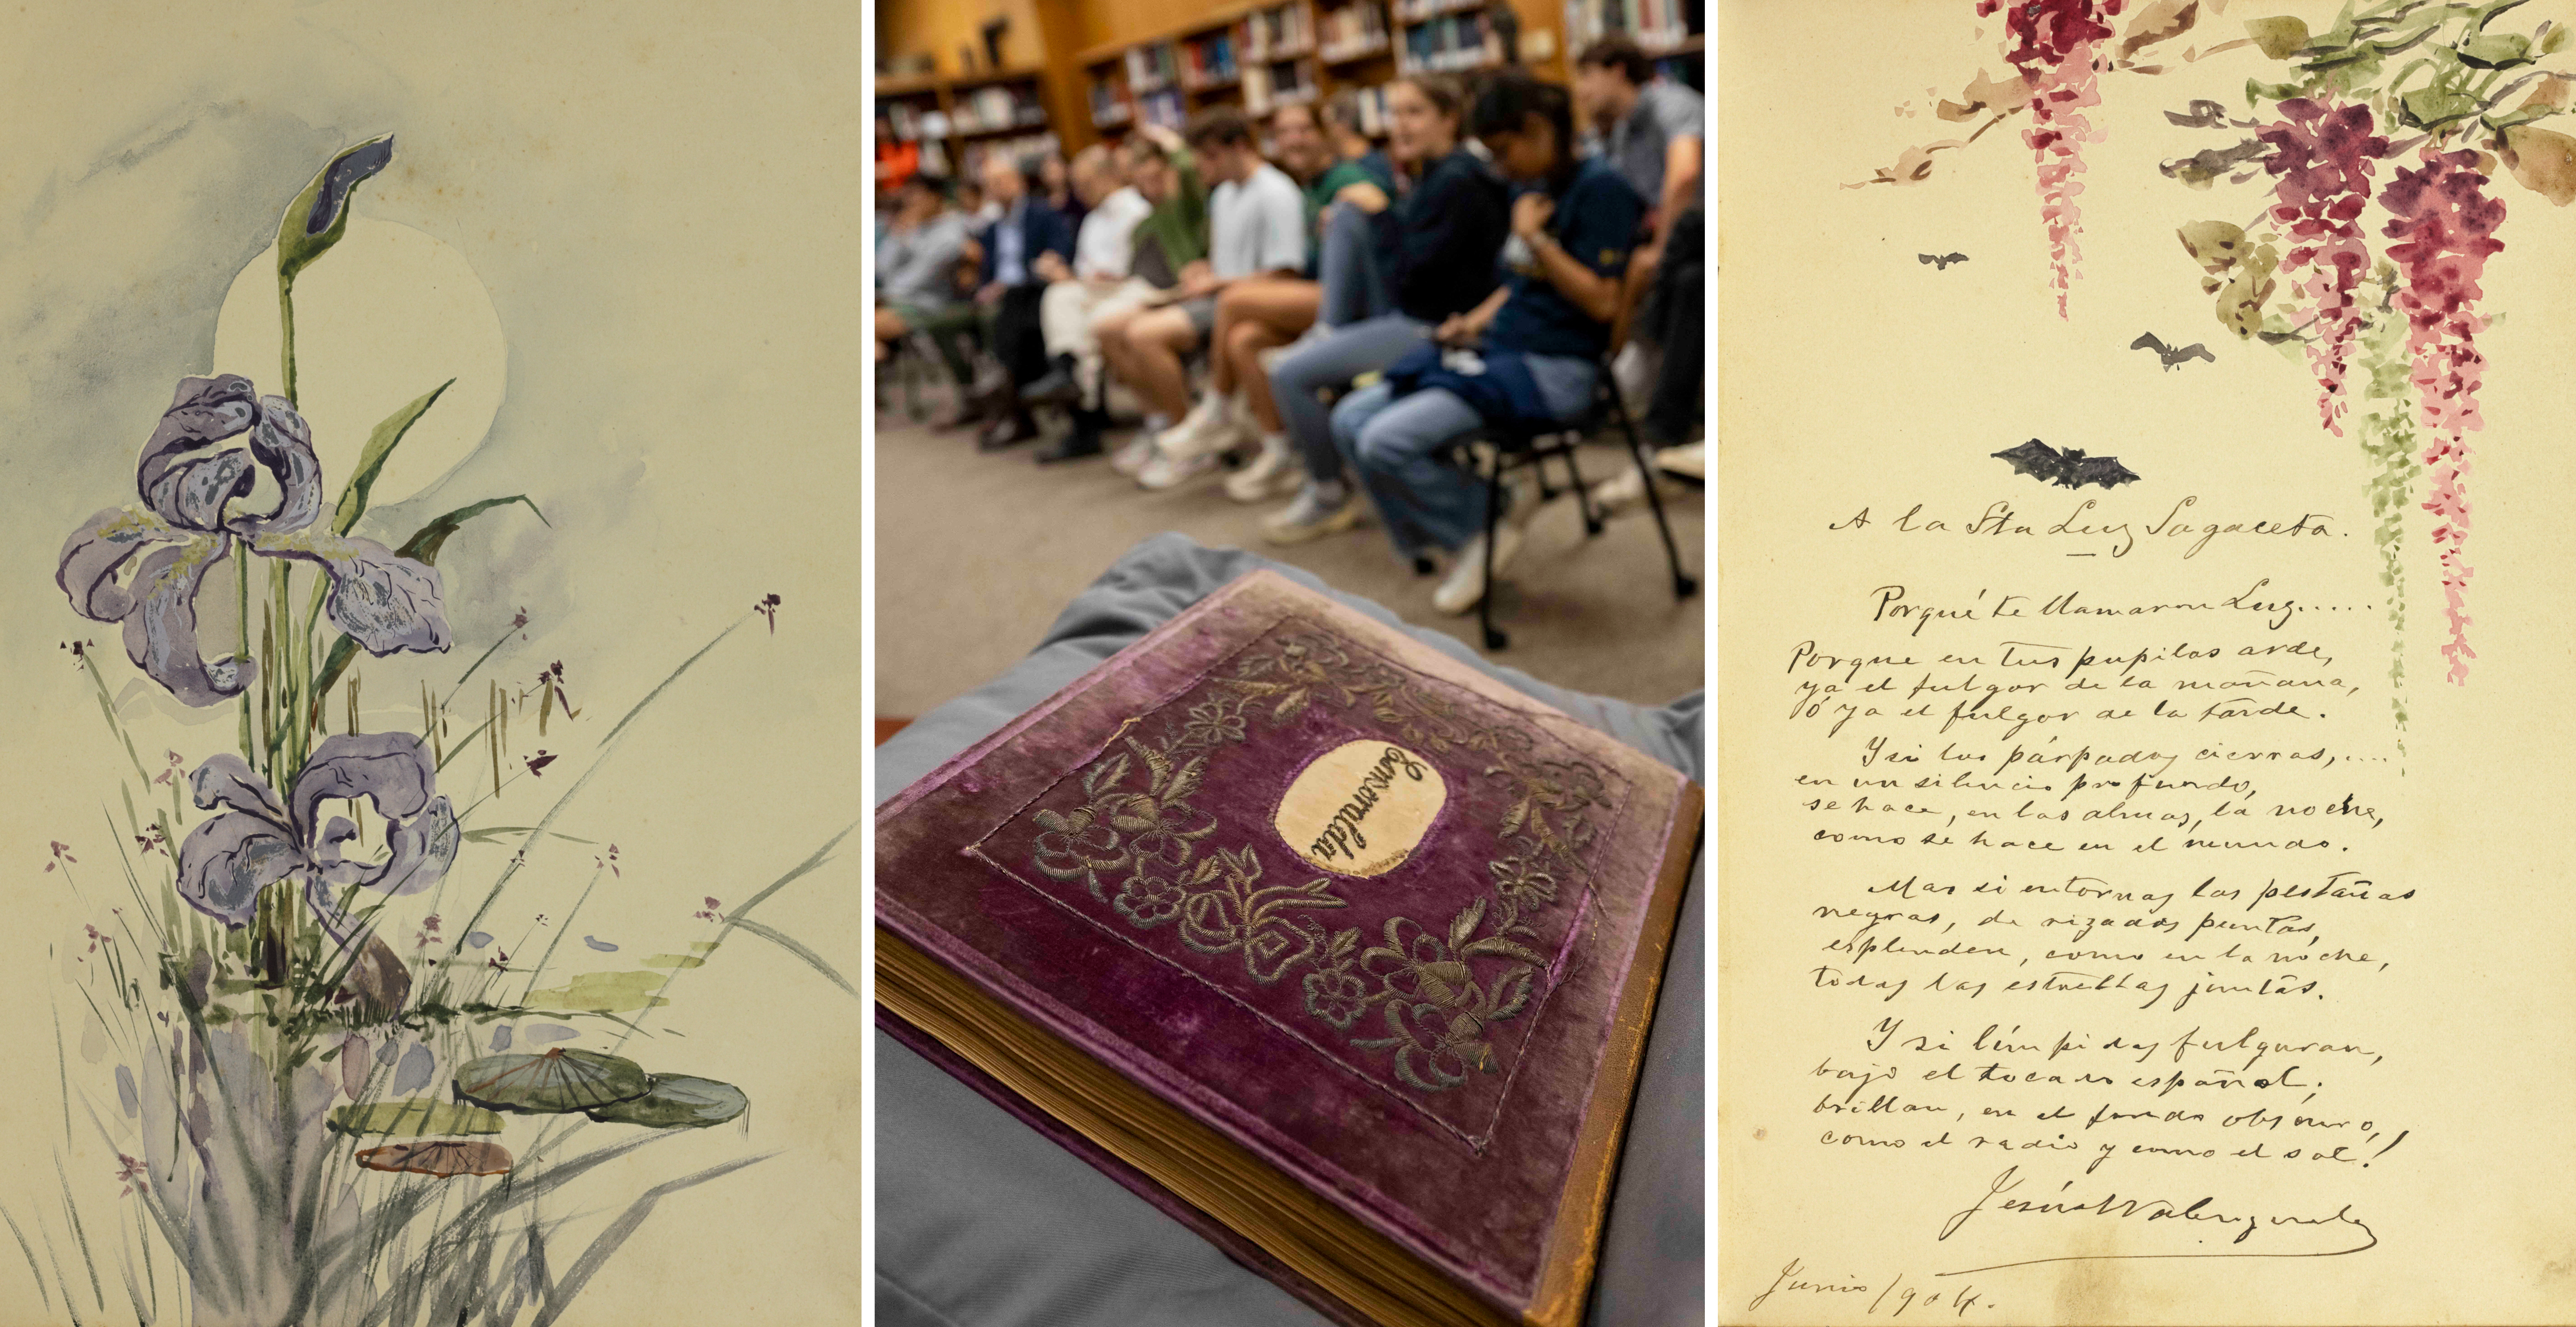 Esmeralda
A la Sta Luz Sagaceta.
Porqué te llamaron Luz.....
Porque en tus pupilas arde,
ya el fulgor de la mañana,
ó ya el fulgor de la tarde.
Y si los párpados cierras,....
en un silencio profundo,
se hace, en las almas, la noche,
como se hace en el mundo.
Mas si entornas las pestañas
negras, de rizadas puntas,
esplenden, como en la noche,
todas las estrellas juntas.
Y si límpidas fulguran,
bajo el tocado español;
brillan, en el fondo obscuro,
como el radio y como el sol!
Jesús Valenzuela
Junio/904.